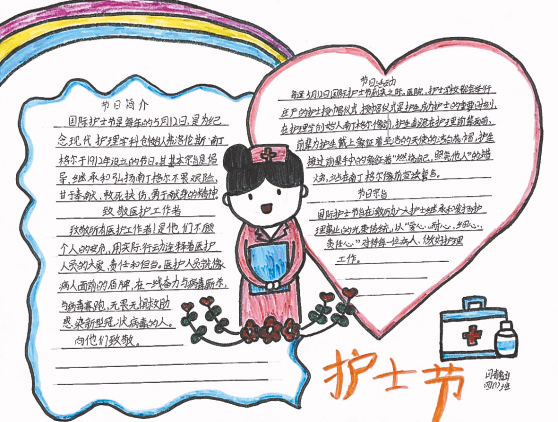 节日简介
国际护士节是每年的5月12日,是为纪
念现代护理学科创始人弗洛伦斯·南丁
格尔于1912年设立的节日。其基本宗旨是倡
导、继承和弘扬南丁格尔不畏艰险、
甘于奉献、救死扶伤、勇于献身的精神
致敬医护工作者
致敬所有医护工作者!是他们不顾
个人的安危,用实际行动诠释着医护
人员的大爱、责任和担当。医护人员就像
病人面前的盾牌,在一线奋力与病毒厮杀,
与病毒赛跑,无畏无惧救助
感染新型冠状病毒的人。
向他们致敬。
节日活动
每年5月12日国际护士节前来之际,医院、护士学校都会举行
庄严的护士授帽仪式,授帽仪式是护生成为护士的重要时刻,
在护理学创始人南丁格尔像前,护生
前辈为护生戴上象征着圣洁的天使的洁白燕帽,护生
接过前辈手中的象征着“燃烧自己,照亮他人”的蜡
烛,站在南丁格尔像前宣读誓言。
节日宗旨
国际护士节旨在激励广大护士继承和发扬护
理事业的光荣传统,以“爱心、耐心、细心、
责任心”对待每一位病人,做好护理
工作。
护士节